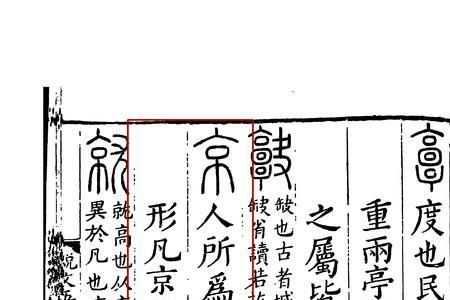 𩫏度也民
重兩亭
之屬皆
𩫨缺也古者城
缺省讀若
京人所爲
形凡京
就就高也从
異於凡也
說文